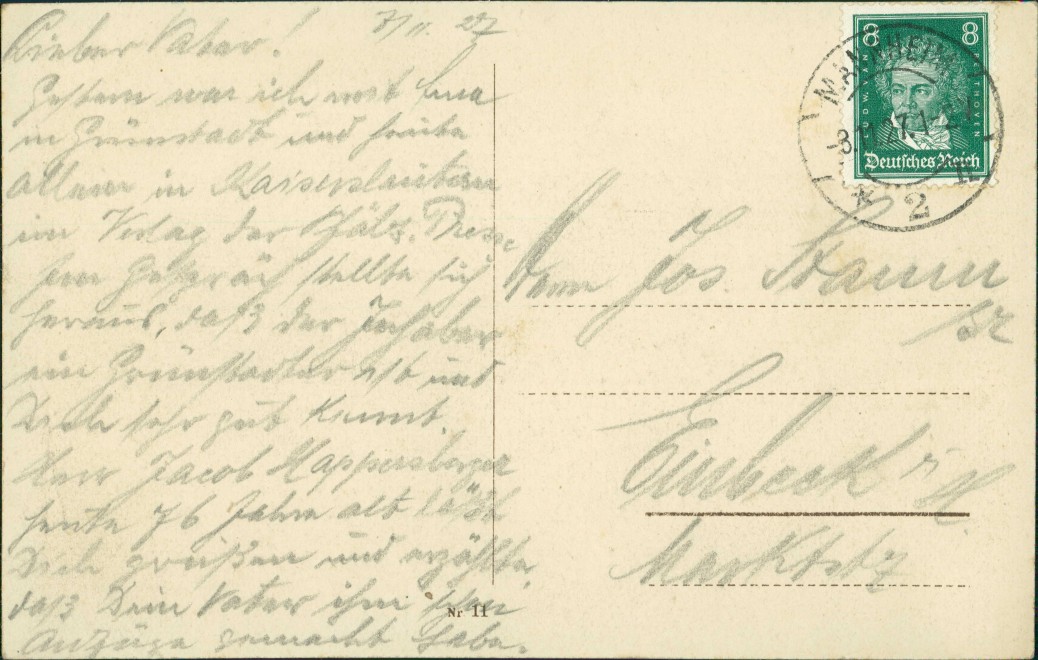 7/11. 27
Lieber Vater!
Gestern war ich mit
in Grünstadt und heute
allein in Kaiserslautern
im Verlag der Pfälz. Presse
Im Gespräch stellte sich
heraus, daß der Inhaber
ein Grünstadter ist und
Dich sehr gut kennt.
Herr Jacob Happersberger
heute 76 Jahre alt läßt
Dich grüßen und erzählte,
daß Dein Vater ihm schon
Anzüge gemacht habe.
Nr 11
Herrn Jos.
sr
Einbeck i/H
Marktstr
8 8
LUDW. VAN BEETHOVEN
Deutsches Reich
MANNHEIM
-8.11.27.
* 2